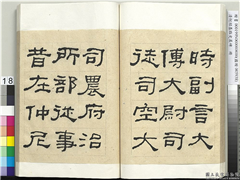 時副言大
傅大尉司
徒司空大
司農府治
所部從事
昔在仲尼
18